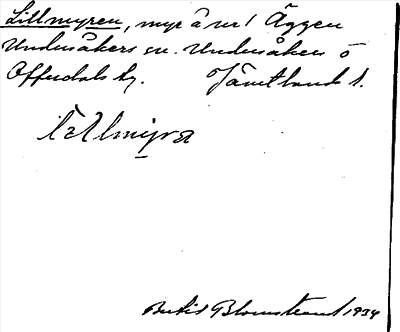 Lillmyren, myr å ner! Äggen
Undersåkers sn. Undersåkers o
Offerdals tg. Jämtlands l.
lillmyra
Bertil Blomstrand 1934